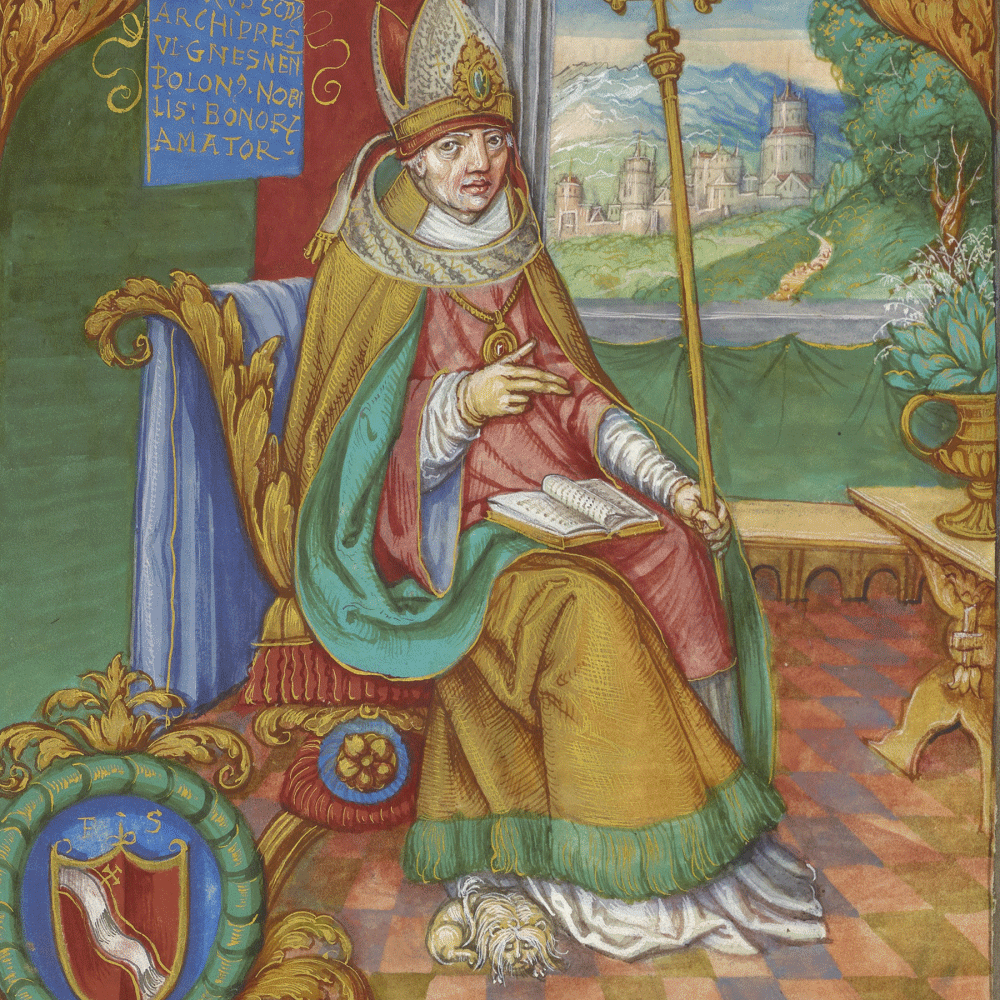 SCDS
ARCHIPRES
VL GNESNEN
POLON9: NOBI
LIS: BONORꝜ
AMATOR